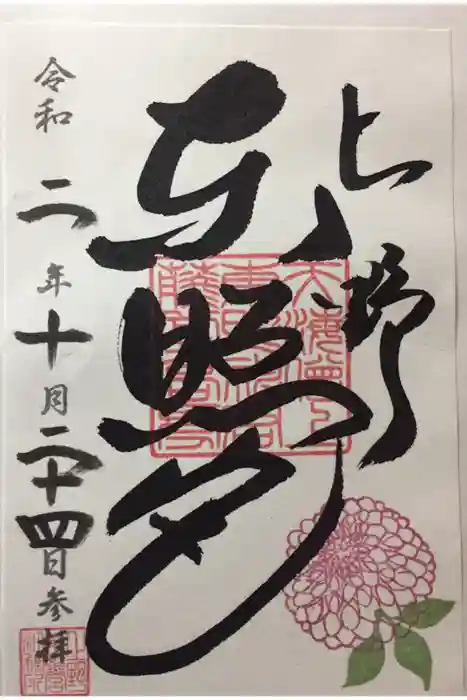 上野
東照宮
令和二年十月二十四日参拝